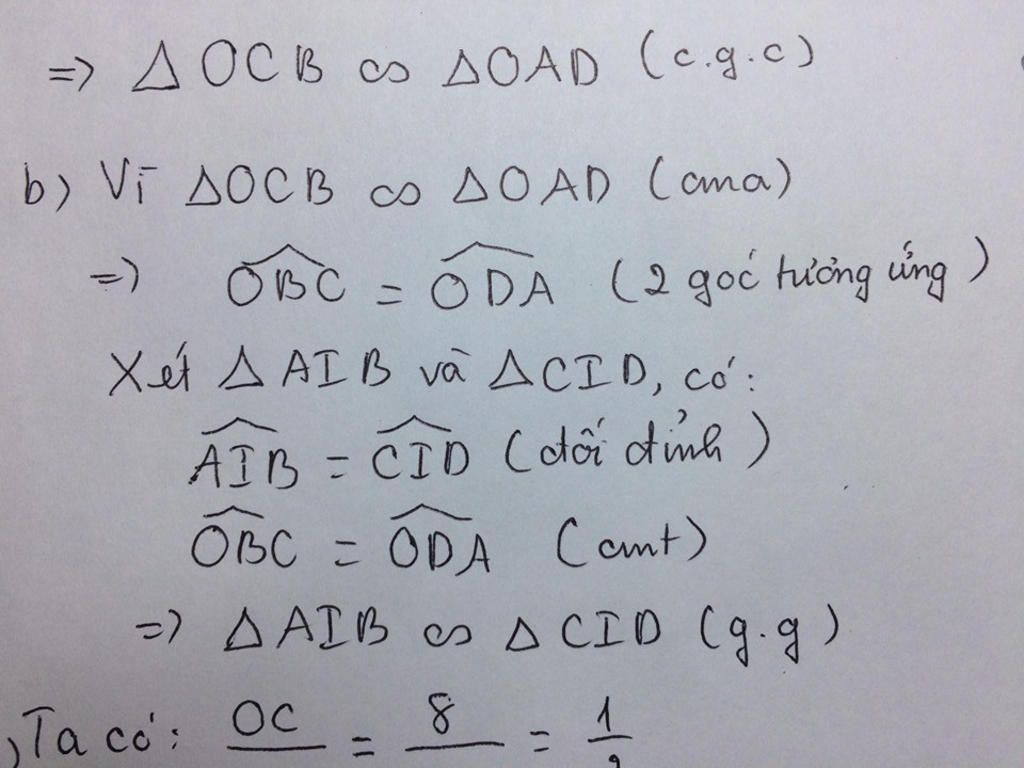 => △OCB ∽ △OAD (c.g.c)
b) Vì △OCB ∽ △OAD (cma)
=> \widehat{OBC} = \widehat{ODA} (2 góc tương ứng)
Xét △AIB và △CID, có:
\widehat{AIB} = \widehat{CID} (đối đỉnh)
\widehat{OBC} = \widehat{ODA} (cmt)
=> △AIB ∽ △CID (g.g)
Ta có: OC = 8 = 1